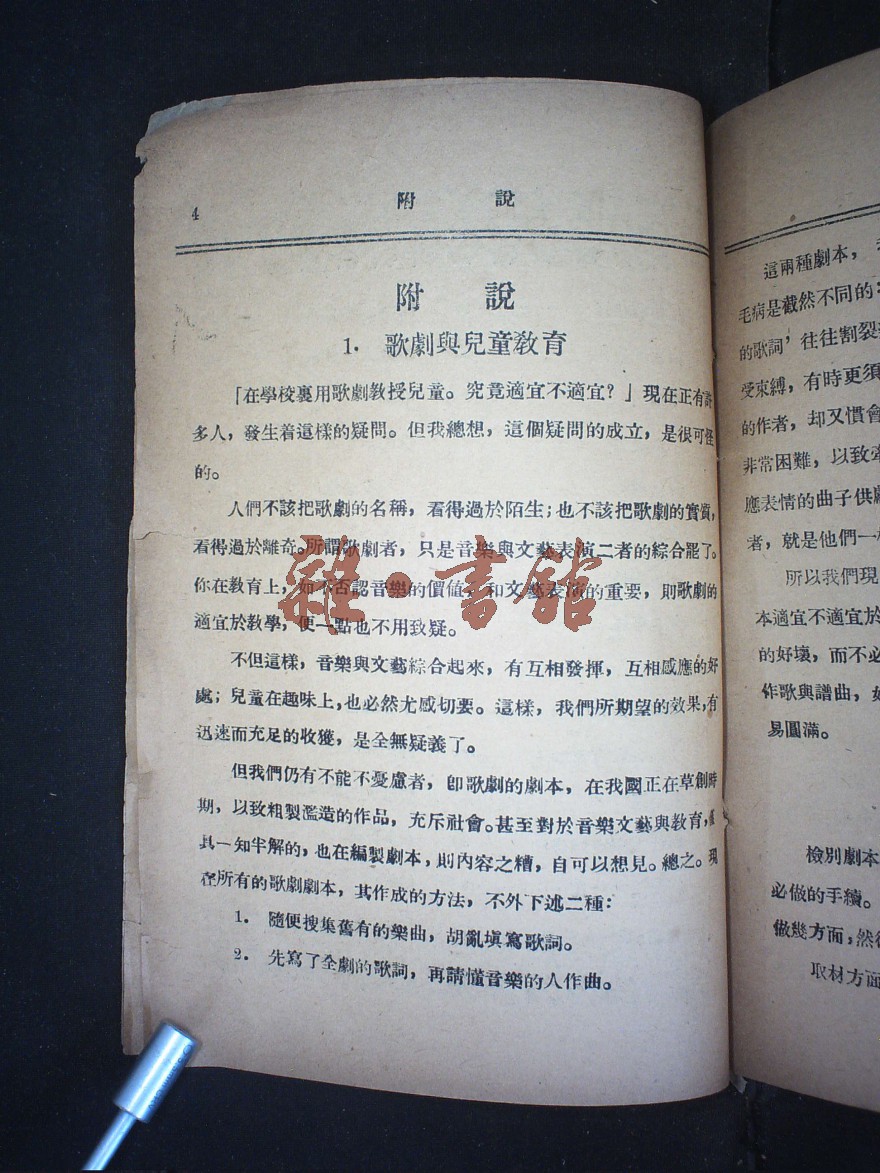 4
附 說
附 說
1. 歌劇與兒童教育
「在學校裏用歌劇教授兒童。究竟適宜不適宜？」現在正有許
多人，發生着這樣的疑問。但我總想，這個疑問的成立，是很可怪
的。
人們不該把歌劇的名稱，看得過於陌生；也不該把歌劇的實質，
看得過於離奇。所謂歌劇者，只是音樂與文藝表演二者的綜合罷了。
你在教育上，如不否認音樂的價值，和文藝表演的重要，則歌劇的
適宜於教學，便一點也不用致疑。
不但這樣，音樂與文藝綜合起來，有互相發揮，互相感應的好
處；兒童在趣味上，也必然尤感切要。這樣，我們所期望的效果，有
迅速而充足的收獲，是全無疑義了。
但我們仍有不能不憂慮者，卽歌劇的劇本，在我國正在草創時
期，以致粗製濫造的作品，充斥社會。甚至對於音樂文藝與教育，僅
具一知半解的，也在編製劇本，則內容之糟，自可以想見。總之。現
在所有的歌劇劇本，其作成的方法，不外下述二種：
1. 隨便搜集舊有的樂曲，胡亂塡寫歌詞。
2. 先寫了全劇的歌詞，再請懂音樂的人作曲。
雜·書館
這兩種劇本，
毛病是截然不同的：
的歌詞，往往割裂
受束縛，有時更須
的作者，却又慣會
非常困難，以致
應表情的曲子供
者，就是他們一
所以我們現
本適宜不適宜於
的好壞，而不必
作歌與譜曲，如
易圓滿。
檢別劇本
必做的手續。
做幾方面；然後
取材方面